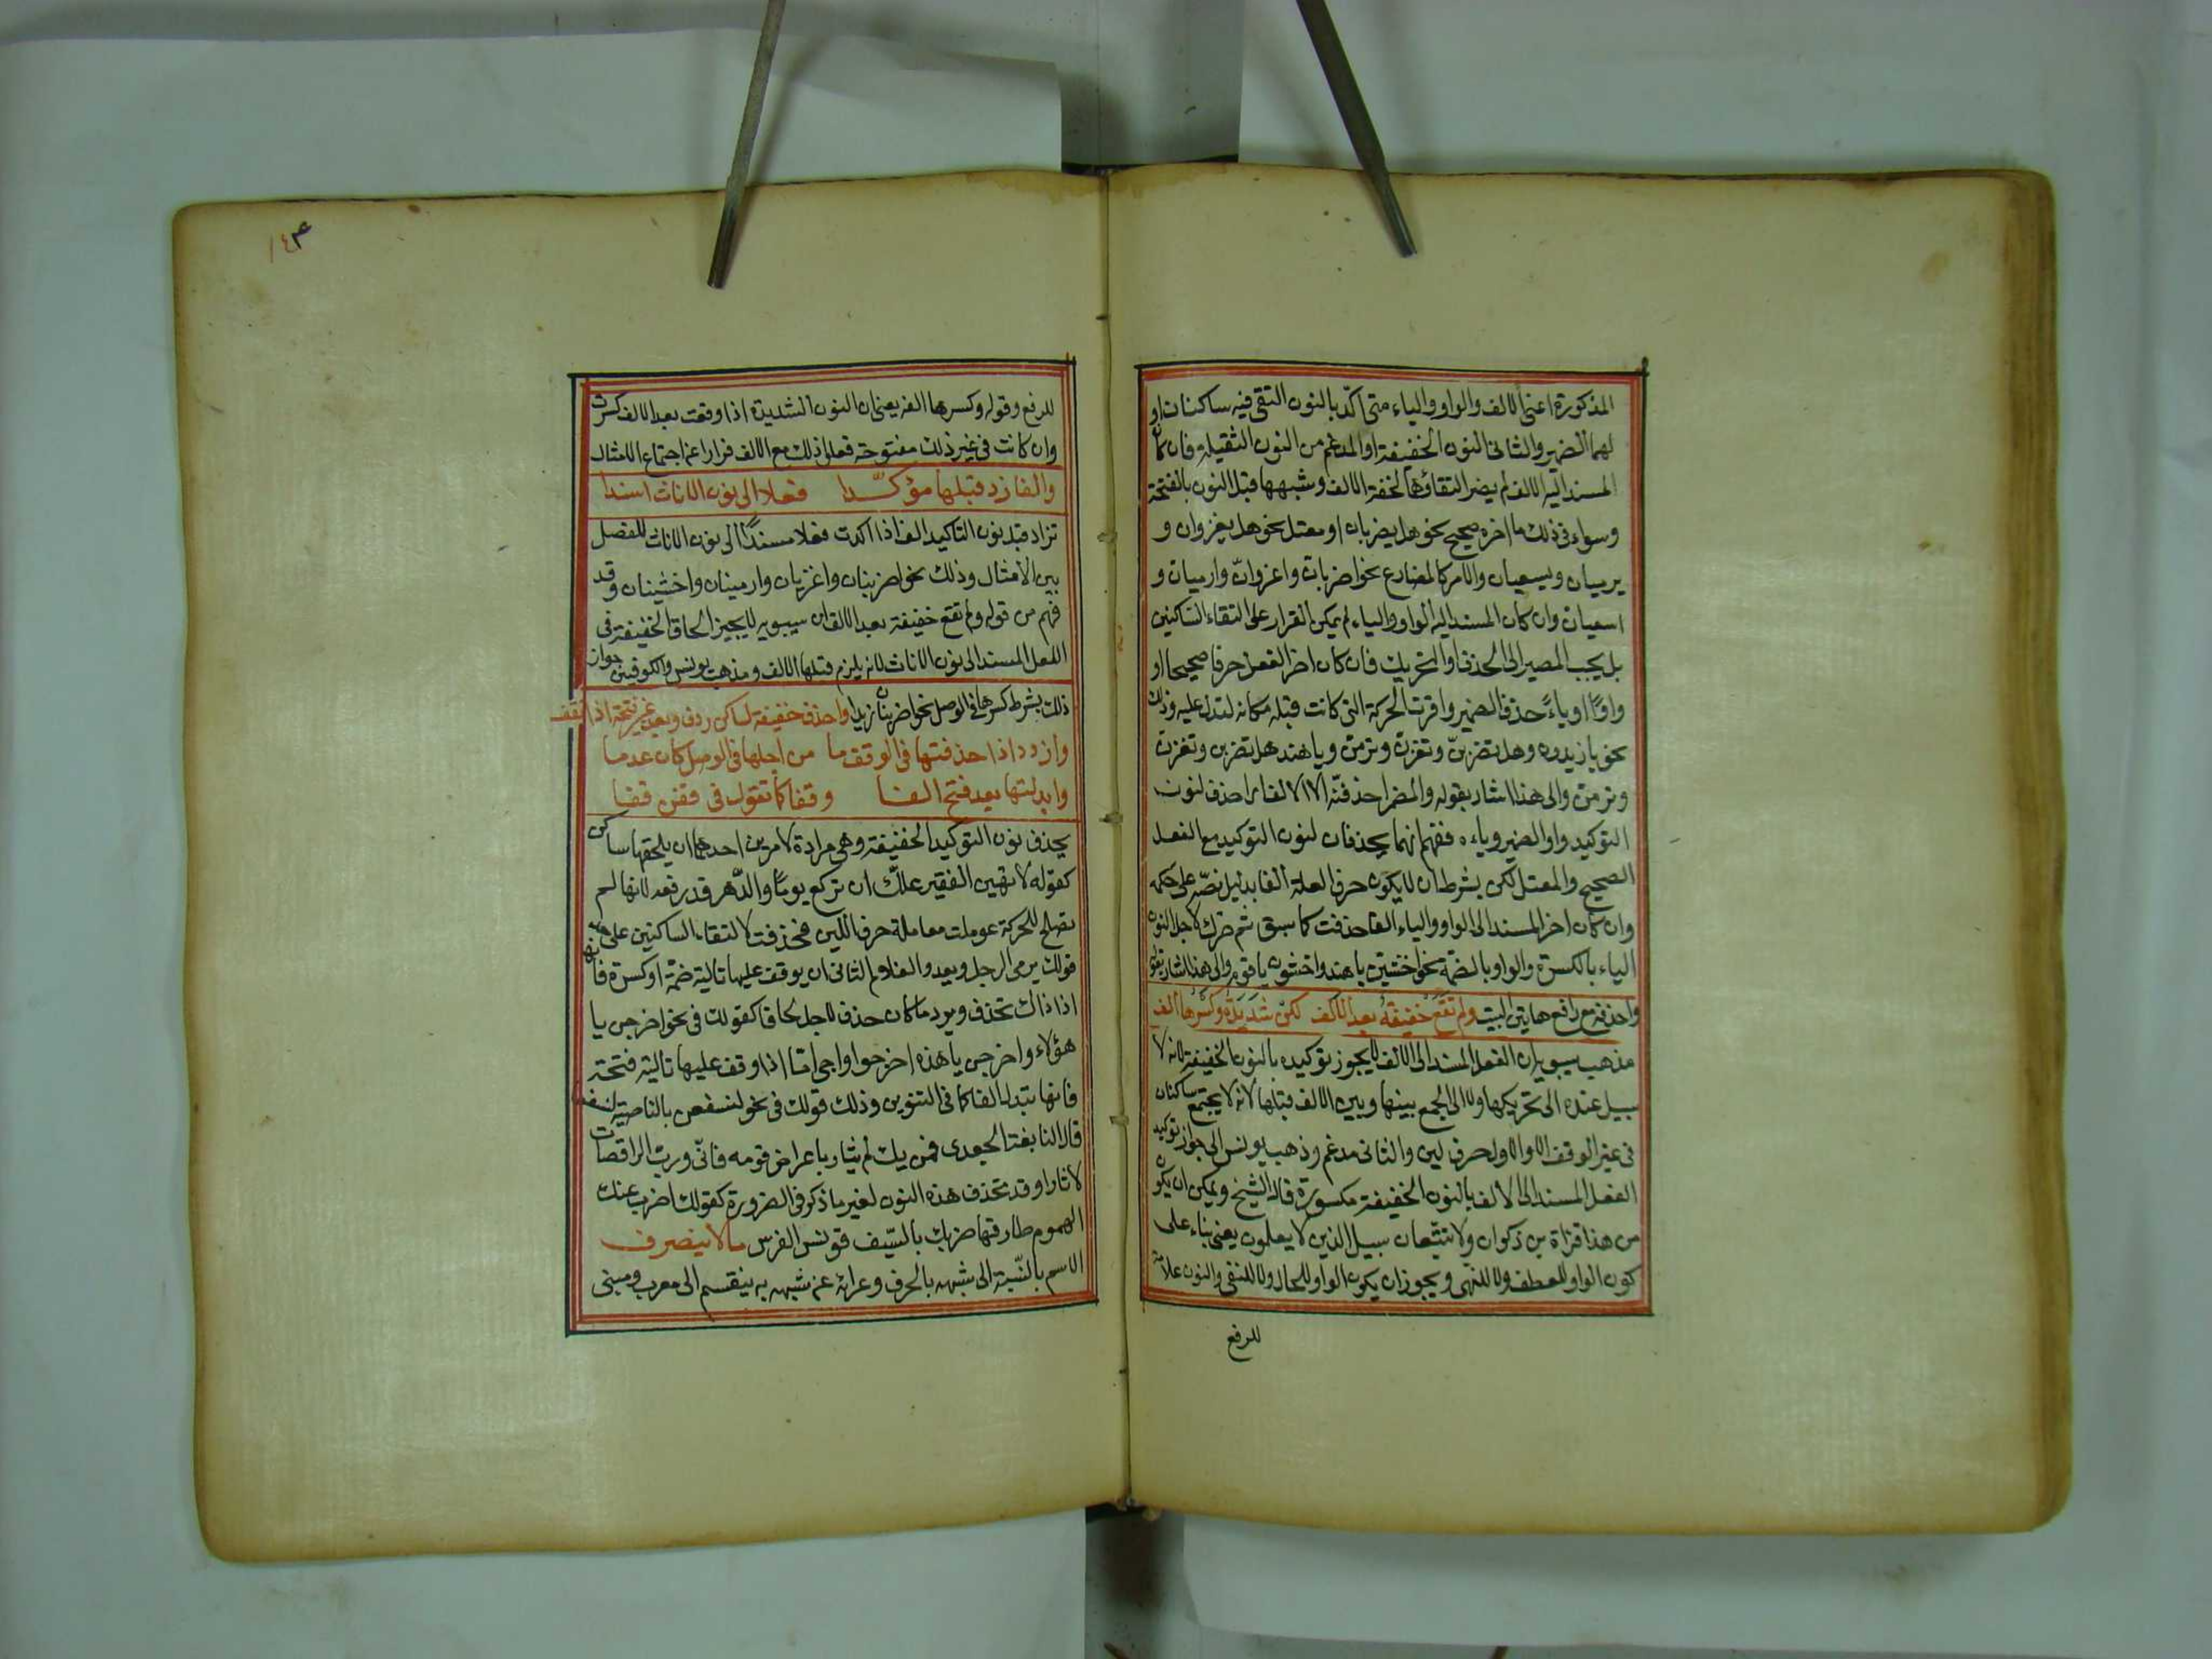 المذكورة اعنى الالف والواو والياء متى اكد بالنون التقى فيه ساكنان او
لهما الضمير والثانى النون الخفيفة او المدغم من النون الثقيلة فان كان
المسند اليه الالف لم يضر التقاؤهما لخفة الالف وشبهها قبل النون بالفتحة
وسواء فى ذلك ما اخره صحيح نحو هل يضربان او معتل نحو هل يغزوان و
يرميان ويسعيان والامر كالمضارع نحو اضربان واغزوانّ وارميان و
اسعيان وان كان المسند اليه الواو والياء لم يمكن القرار على التقاء الساكنين
بل يجب المصير الى الحذف او التحريك فان كان اخر الفعل حرفا صحيحا او
واوًا او ياءً حذف الضمير واقرت الحركة التى كانت قبله مكانه لتدل عليه وذلك
نحو يا زيدون هل تضربنّ وتغزن وترمن ويا هند هل تضربن وتغزن
وترمن والى هذا اشار بقوله والمضمر احذفنّه الا الالف اى احذف لنون
التوكيد واو الضمير وياءه ففهم انهما يحذفان لنون التوكيد مع الفعل
الصحيح والمعتل لكن بشرط ان لا يكون حرف العلة الفا بدليل نصّه على حكمه
وان كان اخر المسند الى الواو والياء الفا حذفت كما سبق ثم حرك لاجل النون
الياء بالكسرة والواو بالضمة نحو اخشين يا هند واخشون يا قوم والى هذا اشار بقوله
واحذفه من رافع هاتين البيت ولم تقع خفيفة بعد الالف لكن شديدة وكسرها الف
مذهب سيبويه ان الفعل المسند الى الالف لا يجوز توكيده بالنون الخفيفة لانه لا
سبيل عنده الى تحريكها ولا الى الجمع بينها وبين الالف قبلها لانه لا يجتمع ساكنان
فى غير الوقف الا والاول حرف لين والثانى مدغم وذهب يونس الى جواز توكيد
الفعل المسند الى الالف بالنون الخفيفة مكسورة قال الشيخ ويمكن ان يكون
من هذا قراة بن ذكوان ولا تتبعان سبيل الذين لا يعلمون يعنى بناء على
كون الواو للعطف ولا للنهى ويجوز ان يكون الواو للحال ولا للنفى والنون علامة
للرفع
١٤٣
للرفع وقوله وكسرها الف يعنى ان النون الشديدة اذا وقعت بعد الالف كسرت
وان كانت فى غير ذلك مفتوحة فعل ذلك مع الالف فرارا عن اجتماع الامثال
والفا زد قبلها مؤكّدا فعلا الى نون الاناث اسندا
تزاد قبل نون التاكيد الف اذا اكدت فعلا مسندًا الى نون الاناث للفصل
بين الامثال وذلك نحو اضربنان واغزنان وارمينان واخشينان وقد
فهم من قوله ولم تقع خفيفة بعد الالف ان سيبويه لا يجيز الحاق الخفيفة فى
الفعل المسند الى نون الاناث لانه يلزم قبلها الالف ومذهب يونس والكوفيين جواز
ذلك بشرط كسرها فى الوصل نحو اضربنان زيدا واحذف خفيفة لساكن ردف وبعد غير فتحة اذا تقف
واردد اذا حذفتها فى الوقف ما من اجلها فى الوصل كان عدما
وابدلنها بعد فتح الفا وقفا كما تقول فى قفن قفا
يحذف نون التوكيد الخفيفة وهى مرادة لامرين احدهما ان يلحقها ساكن
كقوله لا تهين الفقير علك ان تركع يومًا والدّهر قد رفعه لانها لم
تصلح للحركة عوملت معاملة حرف اللين فحذفت لالتقاء الساكنين على حد
قولك يرمى الرجل ويعدو الغلام الثانى ان يوقف عليها تالية ضمّة او كسرة فانها
اذا ذاك تحذف ويرد ما كان حذف لاجل لحاقها كقولك فى نحو اخرجن يا
هؤلاء واخرجن يا هذه اخرجوا واخرجى اما اذا وقف عليها تالية فتحة
فانها تبدل الفا كما فى التنوين وذلك قولك فى نحو لنسفعن بالناصية لنسفعا
قال النابغة الجعدى فمن يك لم يثار باعراض قومه فانّى ورب الراقصات
لاثارا وقد تحذف هذه النون لغير ما ذكر فى الضرورة كقولك اضرب عنك
الهموم طارقها ضربك بالسّيف قونس الفرس ما لا ينصرف
الاسم بالنّسبة الى شبهه بالحرف وعرائه عن شبهه به ينقسم الى معرب ومبنى